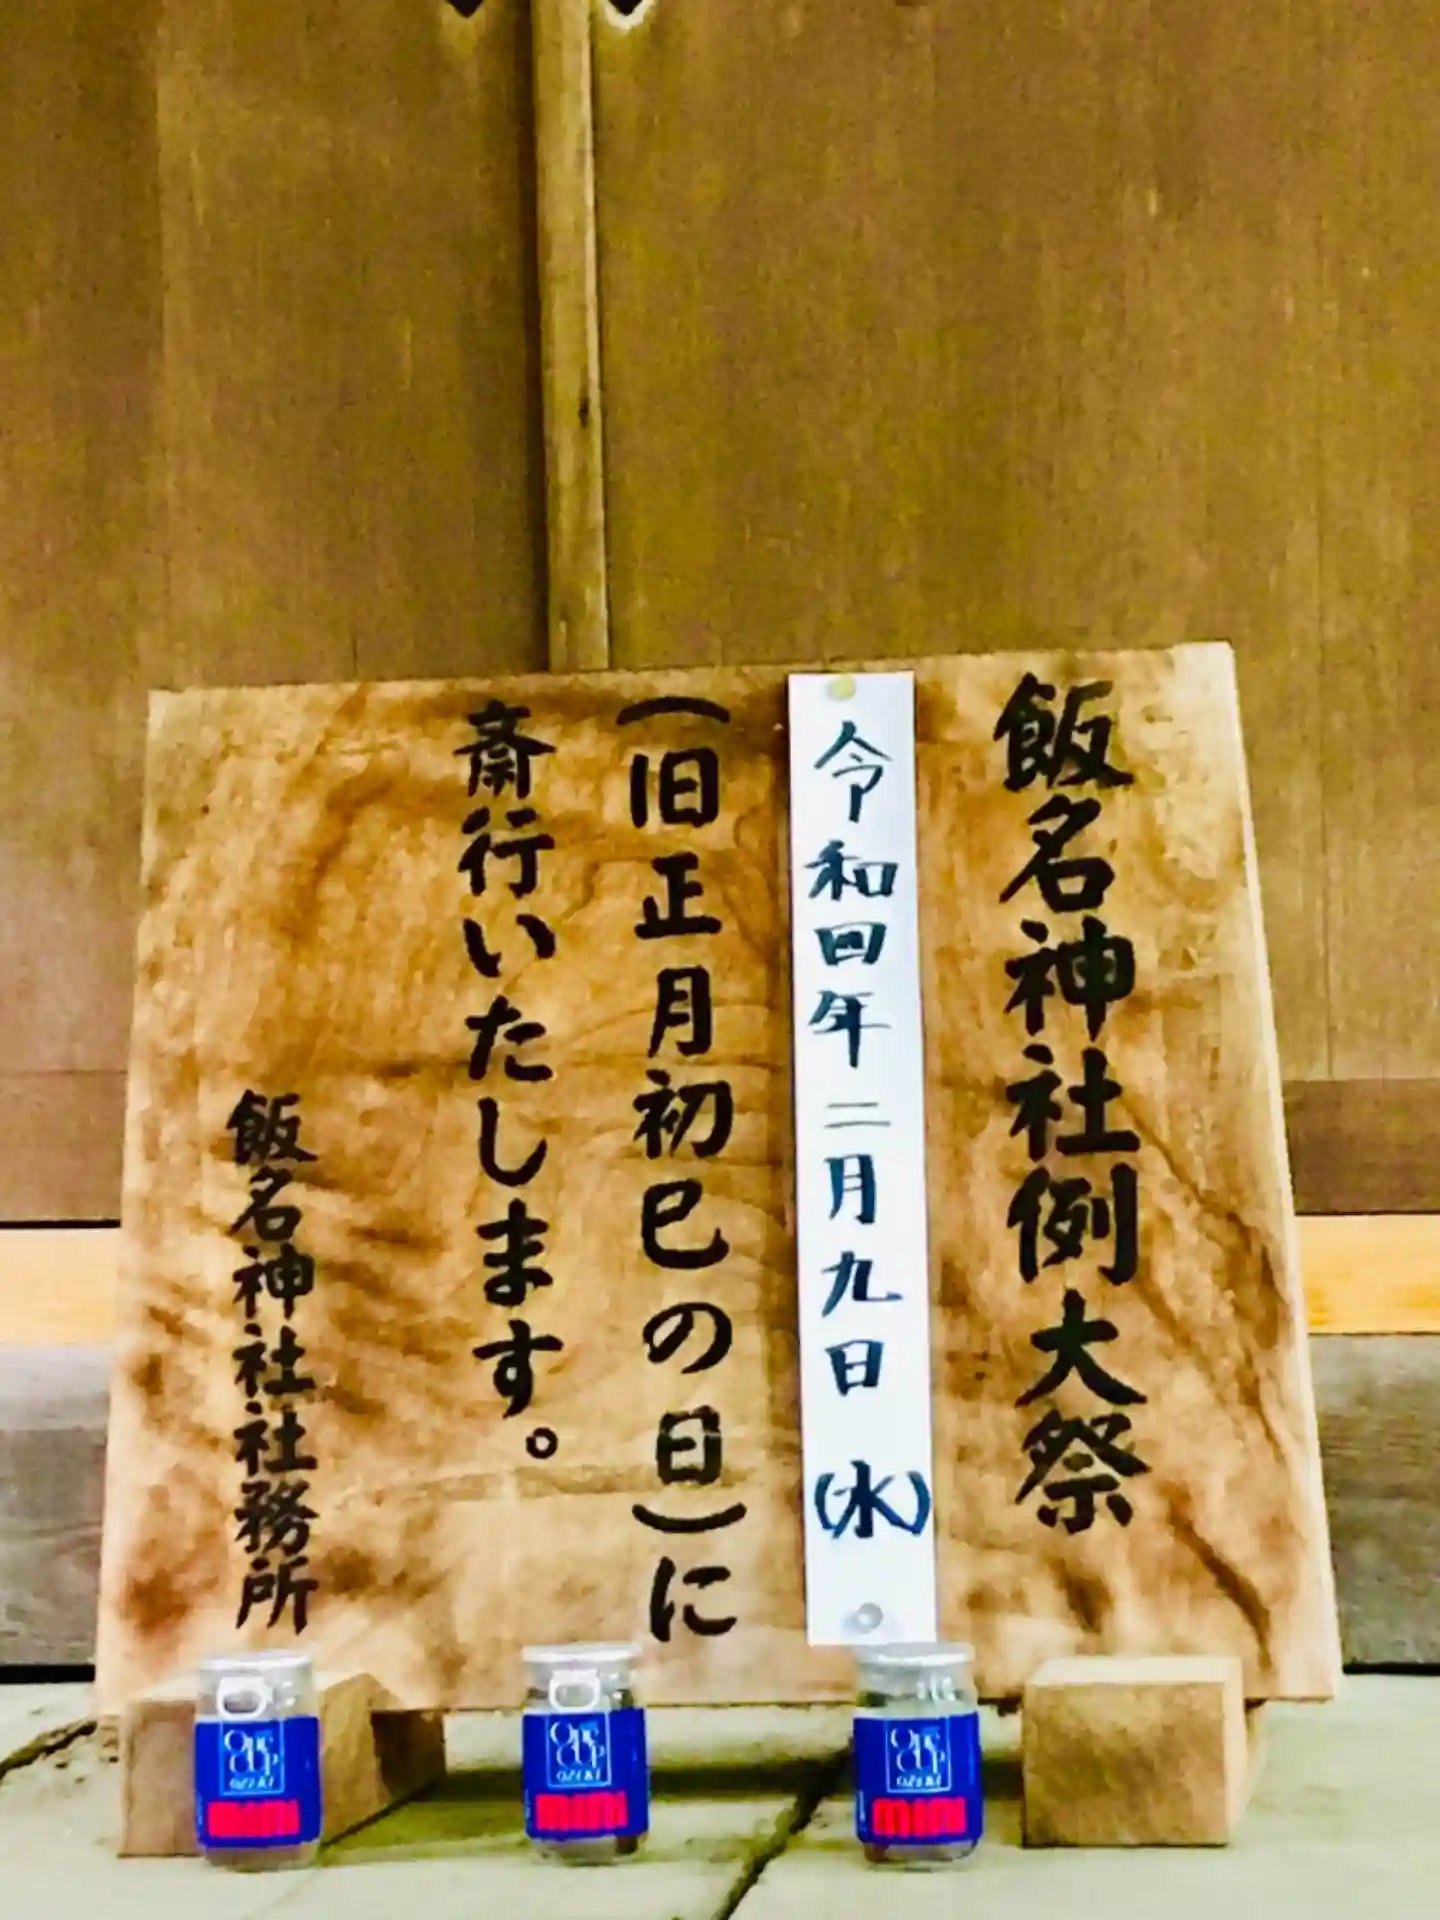 飯名神社例大祭
令和四年二月九日(水)
(旧正月初巳の日)に
斎行いたします。
飯名神社社務所
One CUP
OZEKI
mini
One CUP
OZEKI
mini
One CUP
OZEKI
mini